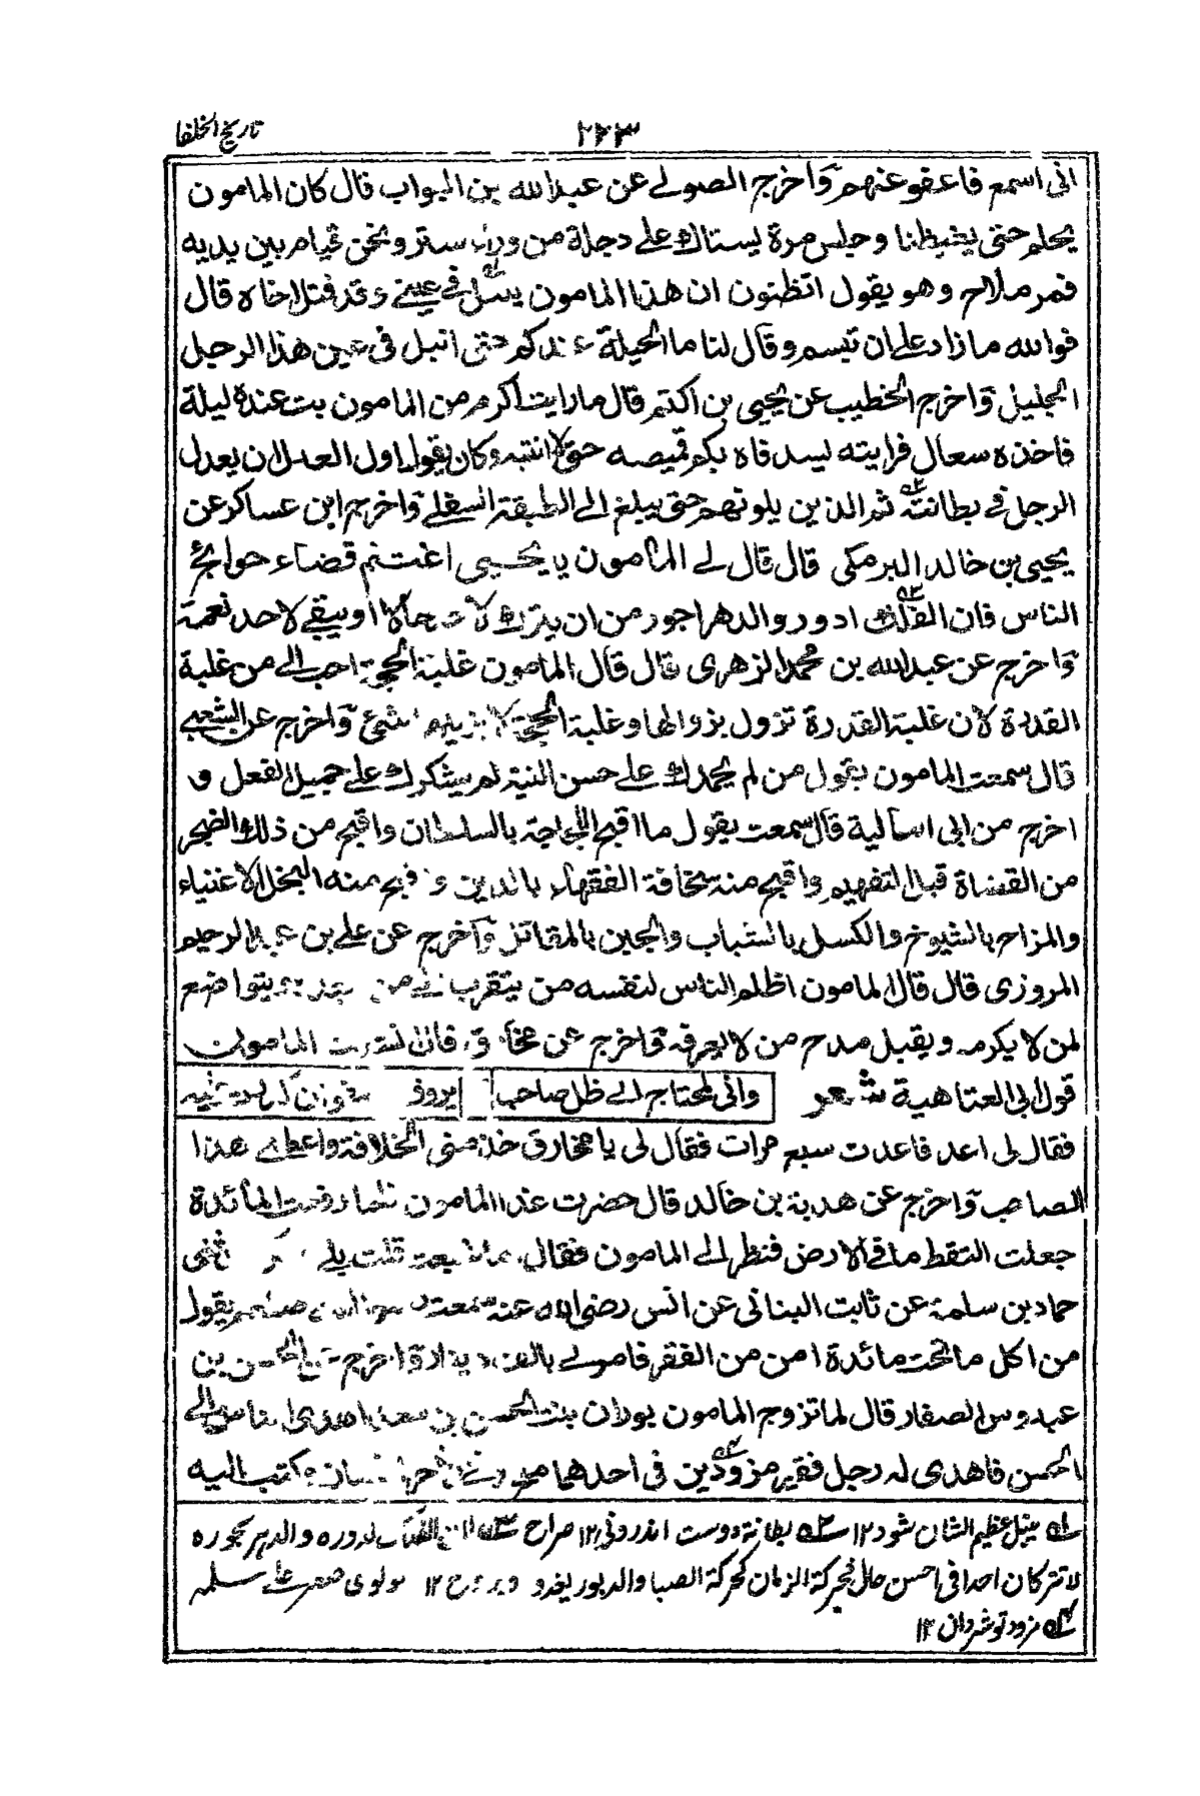 تاريخ الخلفا
٢٢٣
انى اسمع فاعفو عنهم واخرج الصولے عن عبدالله بن البواب قال كان المامون
يحلم حتى يغيظنا وجلس مرة يستاك علے دجلة من وراء ستر ونحن قيام بين يديه
فمر ملاح وهو يقول اتظنون ان هذا المامون ينبل فے عينے وقد قتل اخاه قال
فوالله ما زاد علے ان تبسم وقال لنا ما الحيلة عندكم حتى انبل فى عين هذا الرجل
الجليل واخرج الخطيب عن يحيى بن اكتم قال ما رايت اكرم من المامون بت عنده ليلة
فاخذه سعال فرايته يسد فاه بكم قميصه حتى لا انتبه وكان يقول اول العدل ان يعدل
الرجل فے بطانته ثم الذين يلونهم حتى يبلغ الے الطبقة السفلے واخرج ابن عساكر عن
يحيى بن خالد البرمكى قال قال لے المامون يا يحيى اغتنم قضاء حوائج
الناس فان الفلك ادور والدهر اجور من ان يترك لاحد حالا او يبقے لاحد نعمة
واخرج عن عبدالله بن محمد الزهرى قال قال المامون غلبة الحجة احب الے من غلبة
القدرة لان غلبة القدرة تزول بزوالها وغلبة الحجة لا يزيلها شئ واخرج عن الشعبے
قال سمعت المامون يقول من لم يحمدك علے حسن النية لم يشكرك علے جميل الفعل و
اخرج من ابى اسالية قال سمعت يقول ما اقبح اللجاجة بالسلطان واقبح من ذلك الضجر
من القضاة قبل التفهيم واقبح منه سخافة الفقهاء بالدين واقبح منه البخل الاغنياء
والمزاح بالشيوخ والكسل بالشباب والجبن بالمقاتل واخرج عن علے بن عبد الرحيم
المروزى قال قال المامون اظلم الناس لنفسه من يتقرب الے من يبعده ويتواضع
لمن لا يكرمه ويقبل مدح من لا يعرفه واخرج عن مخارق قال انشدت المامون
قول ابى العتاهية شعر وانى لمحتاج الے ظل صاحب يروق
فقال لى اعد فاعدت سبع مرات فقال لى يا مخارق خذ منى الخلافة واعطنے هذا
الصاحب واخرج عن هدبة بن خالد قال حضرت غداء المامون فلما رفعت المائدة
جعلت التقط ما فے الارض فنظر الے المامون فقال اما شبعت قلت بلے حدثنى
حماد بن سلمة عن ثابت البنانى عن انس رضى الله عنه سمعت رسول الله صلعم يقول
من اكل ما تحت مائدة امن من الفقر فامر لے بالف دينار واخرج عن الحسن بن
عبدوس الصفار قال لما تزوج المامون بوران بنت الحسن بن سهل اهدى الناس الے
الحسن فاهدى له رجل فقير مزودين فى احدهما ملح وفے الاخر اشنان وكتب اليه
لہ ينبل عظيم الشان شود ١٢ سے بطانة دوست اندرونى ١٢ صراح سے فان الفلك لدوره والدهر بجوره
لا تتركان احدا فى احسن حال بحركة الزمان كحركة الصبا والدبور ١٢ مولوى
سے مزود توشه دان ١٢